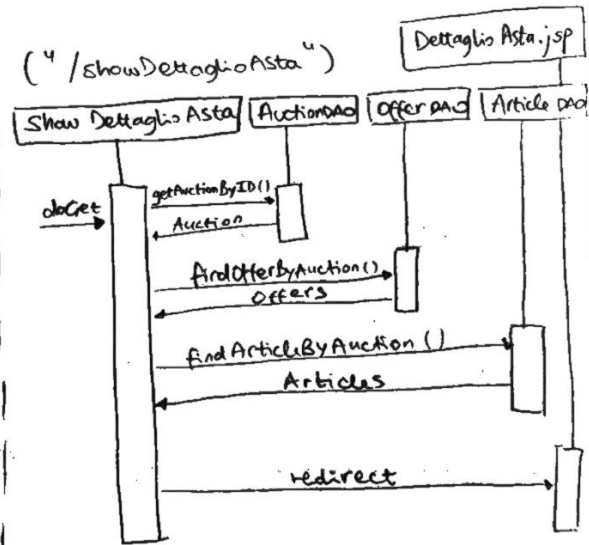 Dettaglio Asta.jsp
("/showDettaglioAsta")
Show Dettaglio Asta
AuctionDAO
Offer DAO
Article DAO
doGet
getAuctionByID()
Auction
findOfferByAuction()
Offers
findArticleByAuction ()
Articles
redirect